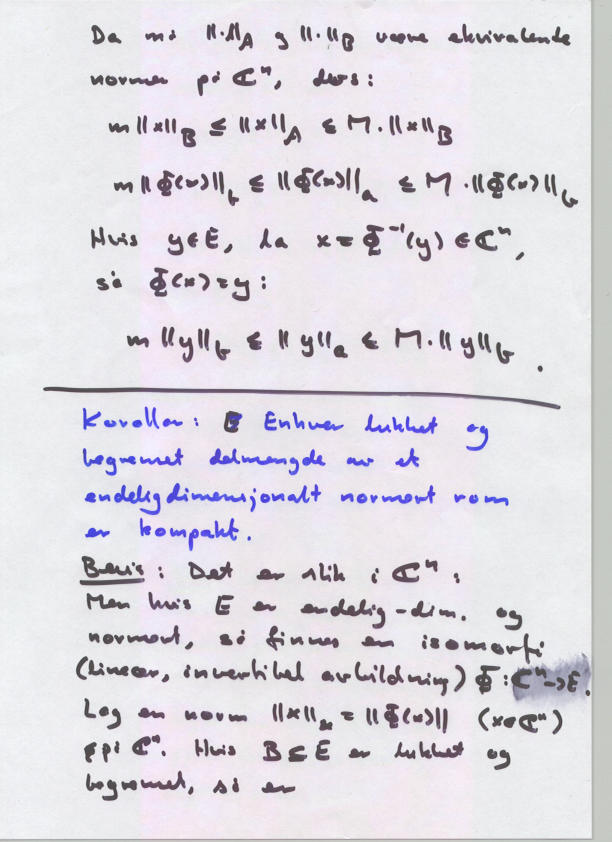 Da må ||·||_A og ||·||_B være ekvivalente
normer på ℂⁿ, dvs:
m||x||_B ≤ ||x||_A ≤ M·||x||_B
m||Φ(x)||_b ≤ ||Φ(x)||_a ≤ M·||Φ(x)||_b
Hvis y∈E, la x = Φ⁻¹(y) ∈ ℂⁿ,
så Φ(x)=y:
m||y||_b ≤ ||y||_a ≤ M·||y||_b.
Korollar: Enhver lukket og
begrenset delmengde av et
endeligdimensjonalt normert rom
er kompakt.
Bevis: Det er slik i ℂⁿ:
Men hvis E er endelig-dim. og
normert, så finnes en isomorfi
(lineær, invertibel avbildning) Φ:ℂⁿ→E.
Lag en norm ||x||_* = ||Φ(x)|| (x∈ℂⁿ)
på ℂⁿ. Hvis B⊆E er lukket og
begrenset, så er